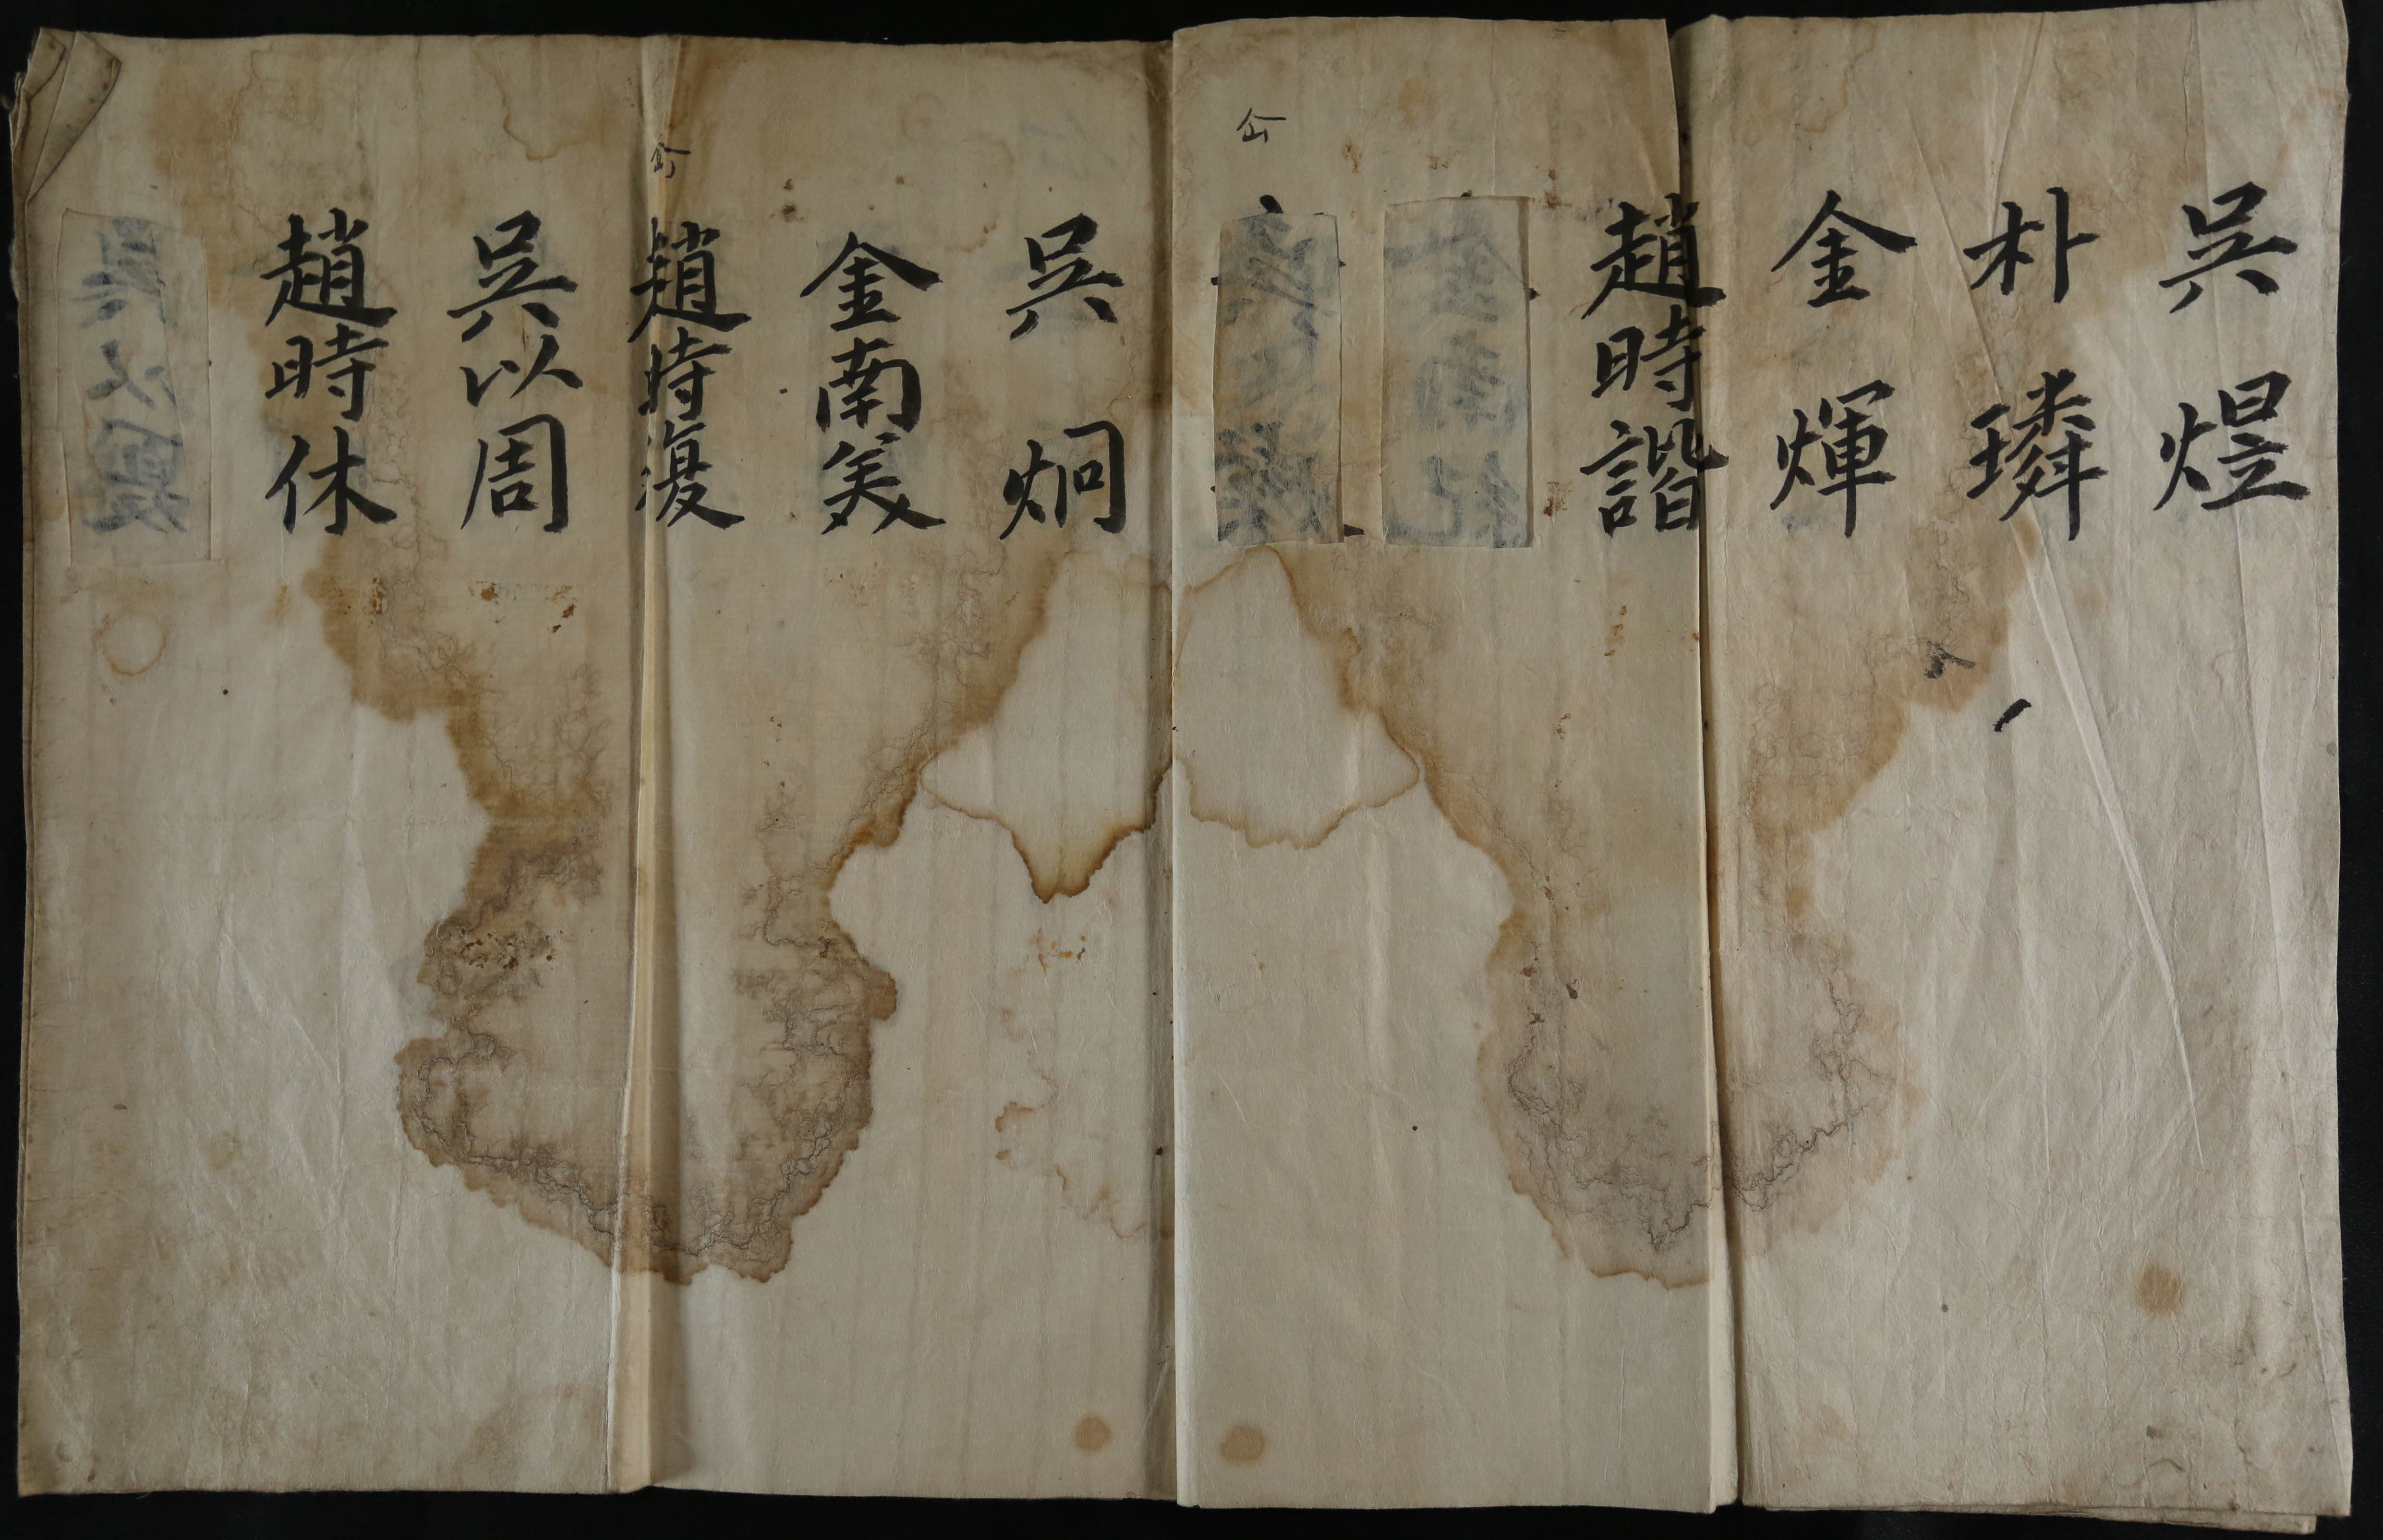 吳煜
朴璘
金煇
趙時諧
吳炯
金南美
趙時復
吳以周
趙時休